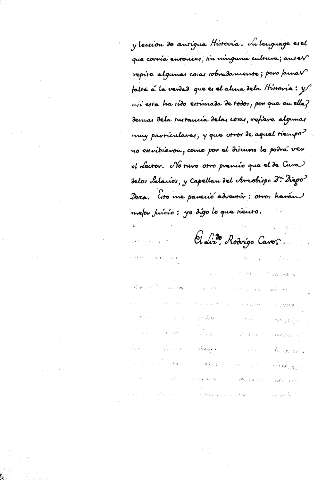 y leccion de antigua Historia. Su lenguage es el
que corria entonces, sin ninguna cultura; aunq.e
repite algunas cosas sobradamente; pero jamas
falta á la verdad que es el alma de la Historia: y
así esta ha sido estimada de todos, por que en ella,
demas de la sustancia de las cosas, refiere algunas
muy particulares, y que otros de aquel tiempo
no escribieron, como por el discurso lo podrá ver
el Lector. No tuvo otro premio que el de Cura
de los Palacios, y Capellan del Arzobispo D.n Diego
Deza. Esto me pareció advertir: otros harán
mejor juicio: yo digo lo que siento.
El Liz.do Rodrigo Caro.